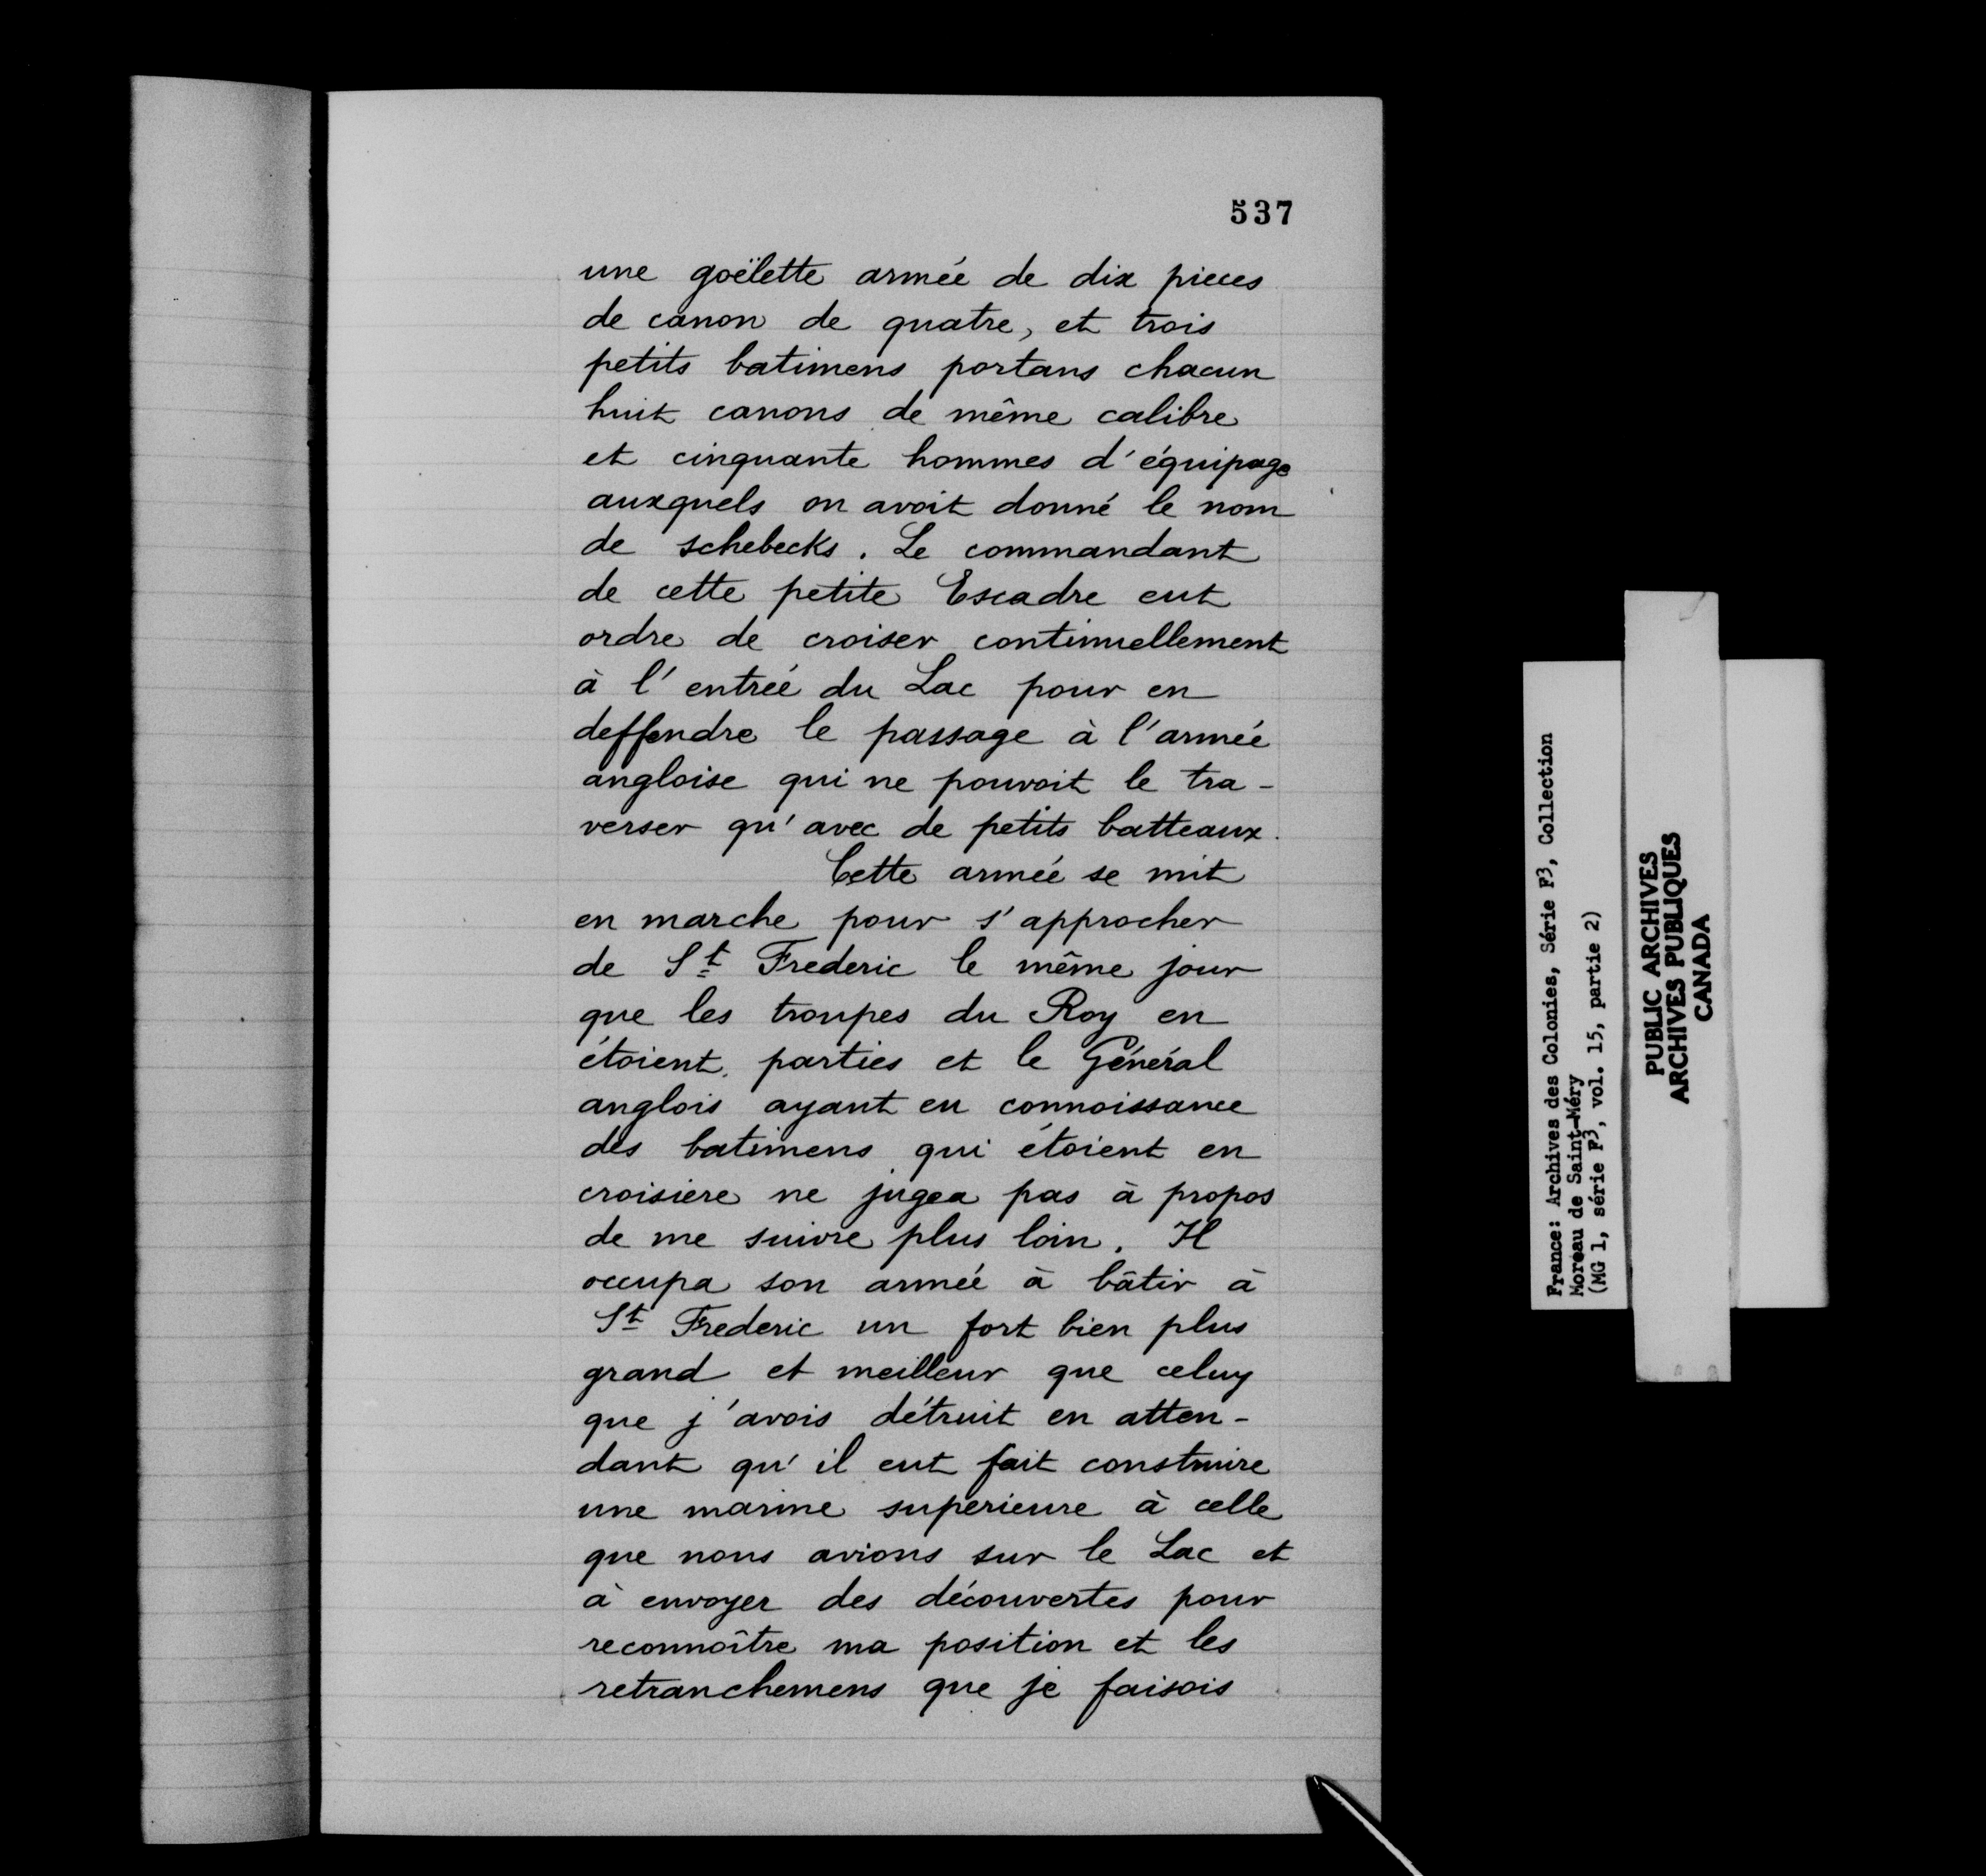 537
une goëlette armée de dix pieces
de canon de quatre, et trois
petits batimens portans chacun
huit canons de même calibre
et cinquante hommes d'équipage
auxquels on avoit donné le nom
de schebecks. Le commandant
de cette petite Escadre eut
ordre de croiser continuellement
à l'entrée du Lac pour en
deffendre le passage à l'armée
angloise qui ne pouvoit le tra-
verser qu'avec de petits batteaux.
Cette armée se mit
en marche pour s'approcher
de St Frederic le même jour
que les troupes du Roy en
étoient parties et le Général
anglois ayant eu connoissance
des batimens qui étoient en
croisiere ne jugea pas à propos
de me suivre plus loin. Il
occupa son armée à bâtir à
St Frederic un fort bien plus
grand et meilleur que celuy
que j'avois détruit en atten-
dant qu'il eut fait construire
une marine superieure à celle
que nous avions sur le Lac et
à envoyer des découvertes pour
reconnoître ma position et les
retranchemens que je faisois
France: Archives des Colonies, Série F3, Collection
Moreau de Saint-Méry
(MG 1, série F3, vol. 15, partie 2)
PUBLIC ARCHIVES
ARCHIVES PUBLIQUES
CANADA